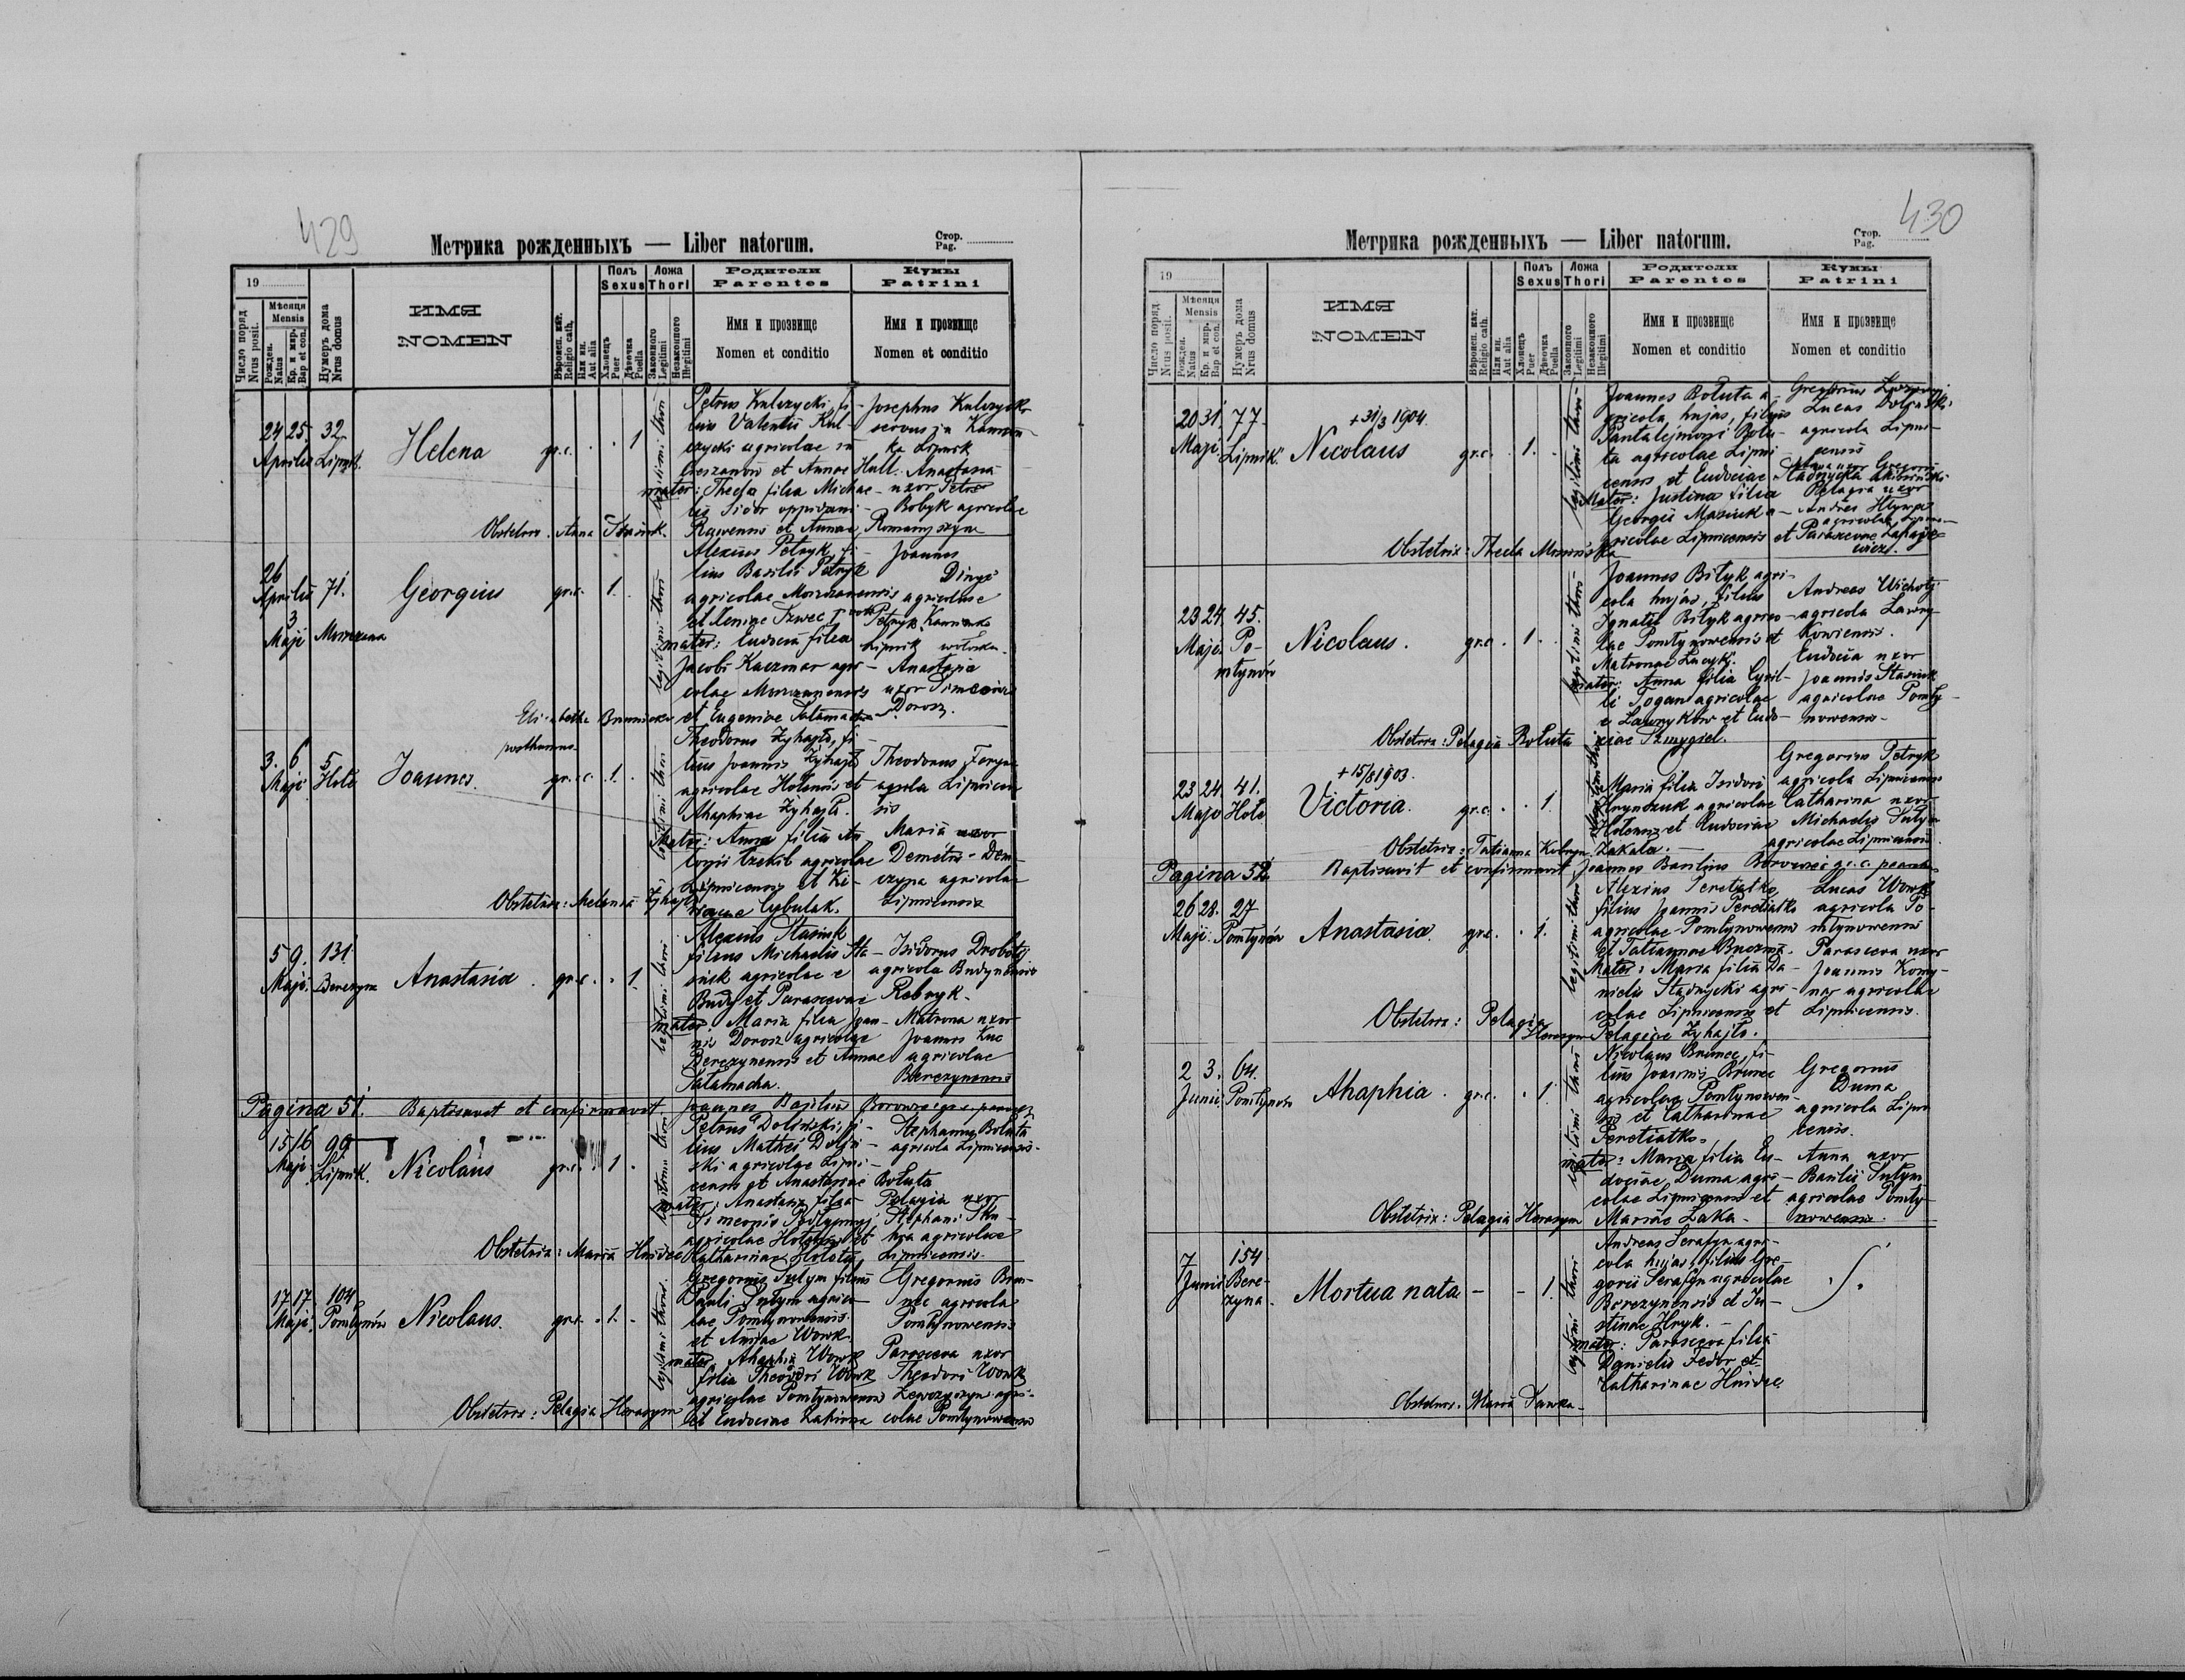 429
Метрика рожденныхъ — Liber natorum.
Стор.
Pag.
19
Число поряд
Nrus posit.
Мѣсяця
Mensis
Рожден.
Natus
Кр. и мир.
Bap et con.
Нумеръ дома
Nrus domus
ИМЯ
NOMEN
Вѣроисп. кат.
Religio cath.
Или ин.
Aut alia
Полъ
Sexus
Хлопецъ
Puer
Дѣвочка
Puella
Ложа
Thori
Законного
Legitimi
Незаконного
Illegitimi
Родители
Parentes
Имя и прозвище
Nomen et conditio
Кумы
Patrini
Имя и прозвище
Nomen et conditio
24 25. 32
Aprilis Lipnik.
Helena
gr.c. . . 1
legitimi thori
Petrus Kulczycki, fi-
lius Valentii Kul-
czycki agricolae in
Cieszanów et Annae Hall.
mater: Thecla filia Michae-
lis Sidor oppidani
Rawensis et Annae Romanyszyn
Josephus Kulczycki
servus in Kamion
ka Lipnik
Anastasia
uxor Petri
Bobyk agricolae
Obstetrix. Anna Stasiuk.
26
Aprilis 71.
3
Maji
Georgius
gr.c. 1.
legitimi thori
Alexius Petryk, fi-
lius Basilii Petryk
agricolae
et Xeniae Szwec
mater: Eudocia filia
Jacobi Kaczmar agri-
colae
et Eugeniae Tatamacha
Joannes
agricolae
Petryk Kamionka
Lipnik wołoska.
Anastasia
uxor Simeonis
Dorosz.
Elisabetha
posthumus
3. 6 5
Maji Hołe
Joannes.
gr.c. 1.
legitimi thori
Theodorus Zyhajło, fi-
lius Joannis Zyhajło
agricolae Holensis et
Ahaphiae Zyhajło.
Mater: Anna filia An
agricolae
Lipnicensis et Ki-
Cybulak.
Theodorus
agricola Lipnicen
sis
Maria uxor
Demetrii Dem-
czyna agricolae
Lipnicensis
Obstetrix: Melania Zyhajło
5 9. 131
Maji. Berezyna
Anastasia
gr.c. . . 1
legitimi thori
Alexius Stasiuk
filius Michaelis Sta-
siuk agricolae e
Budy et Parascevae Rebryk.
mater: Maria filia Joan-
nis Dorosz agricolae
Berezynensis et Annae
Tatamacha.
Isidorus Drobotij
agricola Budynensis
Matrona uxor
Joannis Kuc
agricolae
Berezynensis
Pagina 51. Baptisavit et confirmavit. Joannes Basilius
15 16 99
Maji Lipnik.
Nicolaus
gr.c. . 1 .
legitimi thori
Petrus Doliński, fi-
lius Mathei Doliń-
ski agricolae Lipni-
censis et Anastasiae Bołuta
mater: Anastasia filia
Simeonis
agricolae Holensis et
Katharinae Hołota
Stephanus Bołuta
agricola Lipnicensis.
Pelagia uxor
Stephani
agricolae
Lipnicensis.
Obstetrix: Maria Hnidec
17 17. 104
Maji. Pomłynów
Nicolaus.
gr.c. . 1. .
legitimi thori.
Gregorius Sułym filius
Pauli Sułym agrico-
lae Pomłynowensis
et Annae Wowk.
mater: Ahaphia Wowk
filia Theodori Wowk
agricolae Pomłynowensis
et Eudociae
Gregorius Bru-
nec agricola
Pomłynowensis
Parasceva uxor
Theodori Wowk
agri-
colae Pomłynowensis
Obstetrix: Pelagia Herasym
430
Метрика рожденныхъ — Liber natorum.
Стор.
Pag.
19
Число поряд
Nrus posit.
Мѣсяця
Mensis
Рожден.
Natus
Кр. и мир.
Bap et con.
Нумеръ дома
Nrus domus
ИМЯ
NOMEN
Вѣроисп. кат.
Religio cath.
Или ин.
Aut alia
Полъ
Sexus
Хлопецъ
Puer
Дѣвочка
Puella
Ложа
Thori
Законного
Legitimi
Незаконного
Illegitimi
Родители
Parentes
Имя и прозвище
Nomen et conditio
Кумы
Patrini
Имя и прозвище
Nomen et conditio
20 31. 77.
Maji Lipnik.
+31/3 1904.
Nicolaus
gr.c. . 1. .
legitimi thori
Joannes Bołuta a-
gricola hujas, filius
Pantalejmoni Bołu-
ta agricolae Lipni-
censis et Eudociae
Mater: Justina filia
Georgii Masiuk a-
gricolae Lipnicensis et Parascevae
Gregorius
Lucas
agricola Lipni-
censis
uxor Gregorii
Pelagia uxor
agricolae
Obstetrix: Thecla
23 24. 45.
Maji. Po-
młynów
Nicolaus.
gr.c. . 1. .
legitimi thori
Joannes Biłyk agri-
cola hujas, filius
Ignatii Biłyk agrico-
lae Pomłynowensis et
Matronae
mater: Anna filia Cyril-
li Togan agricolae
e Ławryków et Eudo-
ciae Szmygiel.
Andreas
agricola Ławry-
kowiensis.
Eudocia uxor
Joannis Stasiuk
agricolae Pomły-
nowensis.
Obstetrix: Pelagia Bołuta
23 24. 41.
Majo Hołe
+15/8 1903.
Victoria.
gr.c. . . 1.
Maria filia Isidori
Hrynczuk agricolae
Holensis et Eudociae
Zakala.
Gregorius Petryk
agricola Lipnicensis
Catharina uxor
Michaelis Sułym
agricolae Lipnicensis.
Obstetrix: Tatianna
Pagina 52. Baptisavit et confirmavit Joannes Basilius
26 28. 27
Maji. Pomłynów
Anastasia.
gr.c. . 1.
legitimi thori
Alexius Peretiatko
filius Joannis Peretiatko
agricolae Pomłynowensis
et Tatiannae
Mater: Maria filia Da-
nielis Stadnycki agri-
colae Lipnicensis et
Pelagiae Zyhajło.
Lucas Wowk
agricola Po-
młynowensis
Parasceva uxor
Joannis Komy-
nar agricolae
Lipnicensis.
Obstetrix: Pelagia
Herasym
2 3. 64.
Junii Pomłynów
Ahaphia.
gr.c. . 1
legitimi thori
Nicolaus Brunec, fi-
lius Joannis Brunec
agricolae Pomłynowen-
sis et Catharinae
Peretiatko.
mater: Maria filia Eu-
dociae Duma agri-
colae Lipnicensis et
Mariae Łaka.
Gregorius
Duma
agricola Lipni
censis.
Anna uxor
Basilii Sułym
agricolae Pomły-
nowensis.
Obstetrix: Pelagia Herasym
7 154
Junii Bere-
zyna.
Mortua nata - - 1.
legitimi thori
Andreas Serafyn agri-
cola hujas, filius Gre-
gorii Serafyn agricolae
Berezynensis et Ju-
stinae Hryk.
mater: Parasceva filia
Danielis Fedor et
Catharinae Hnidec.
Obstetrix. Maria